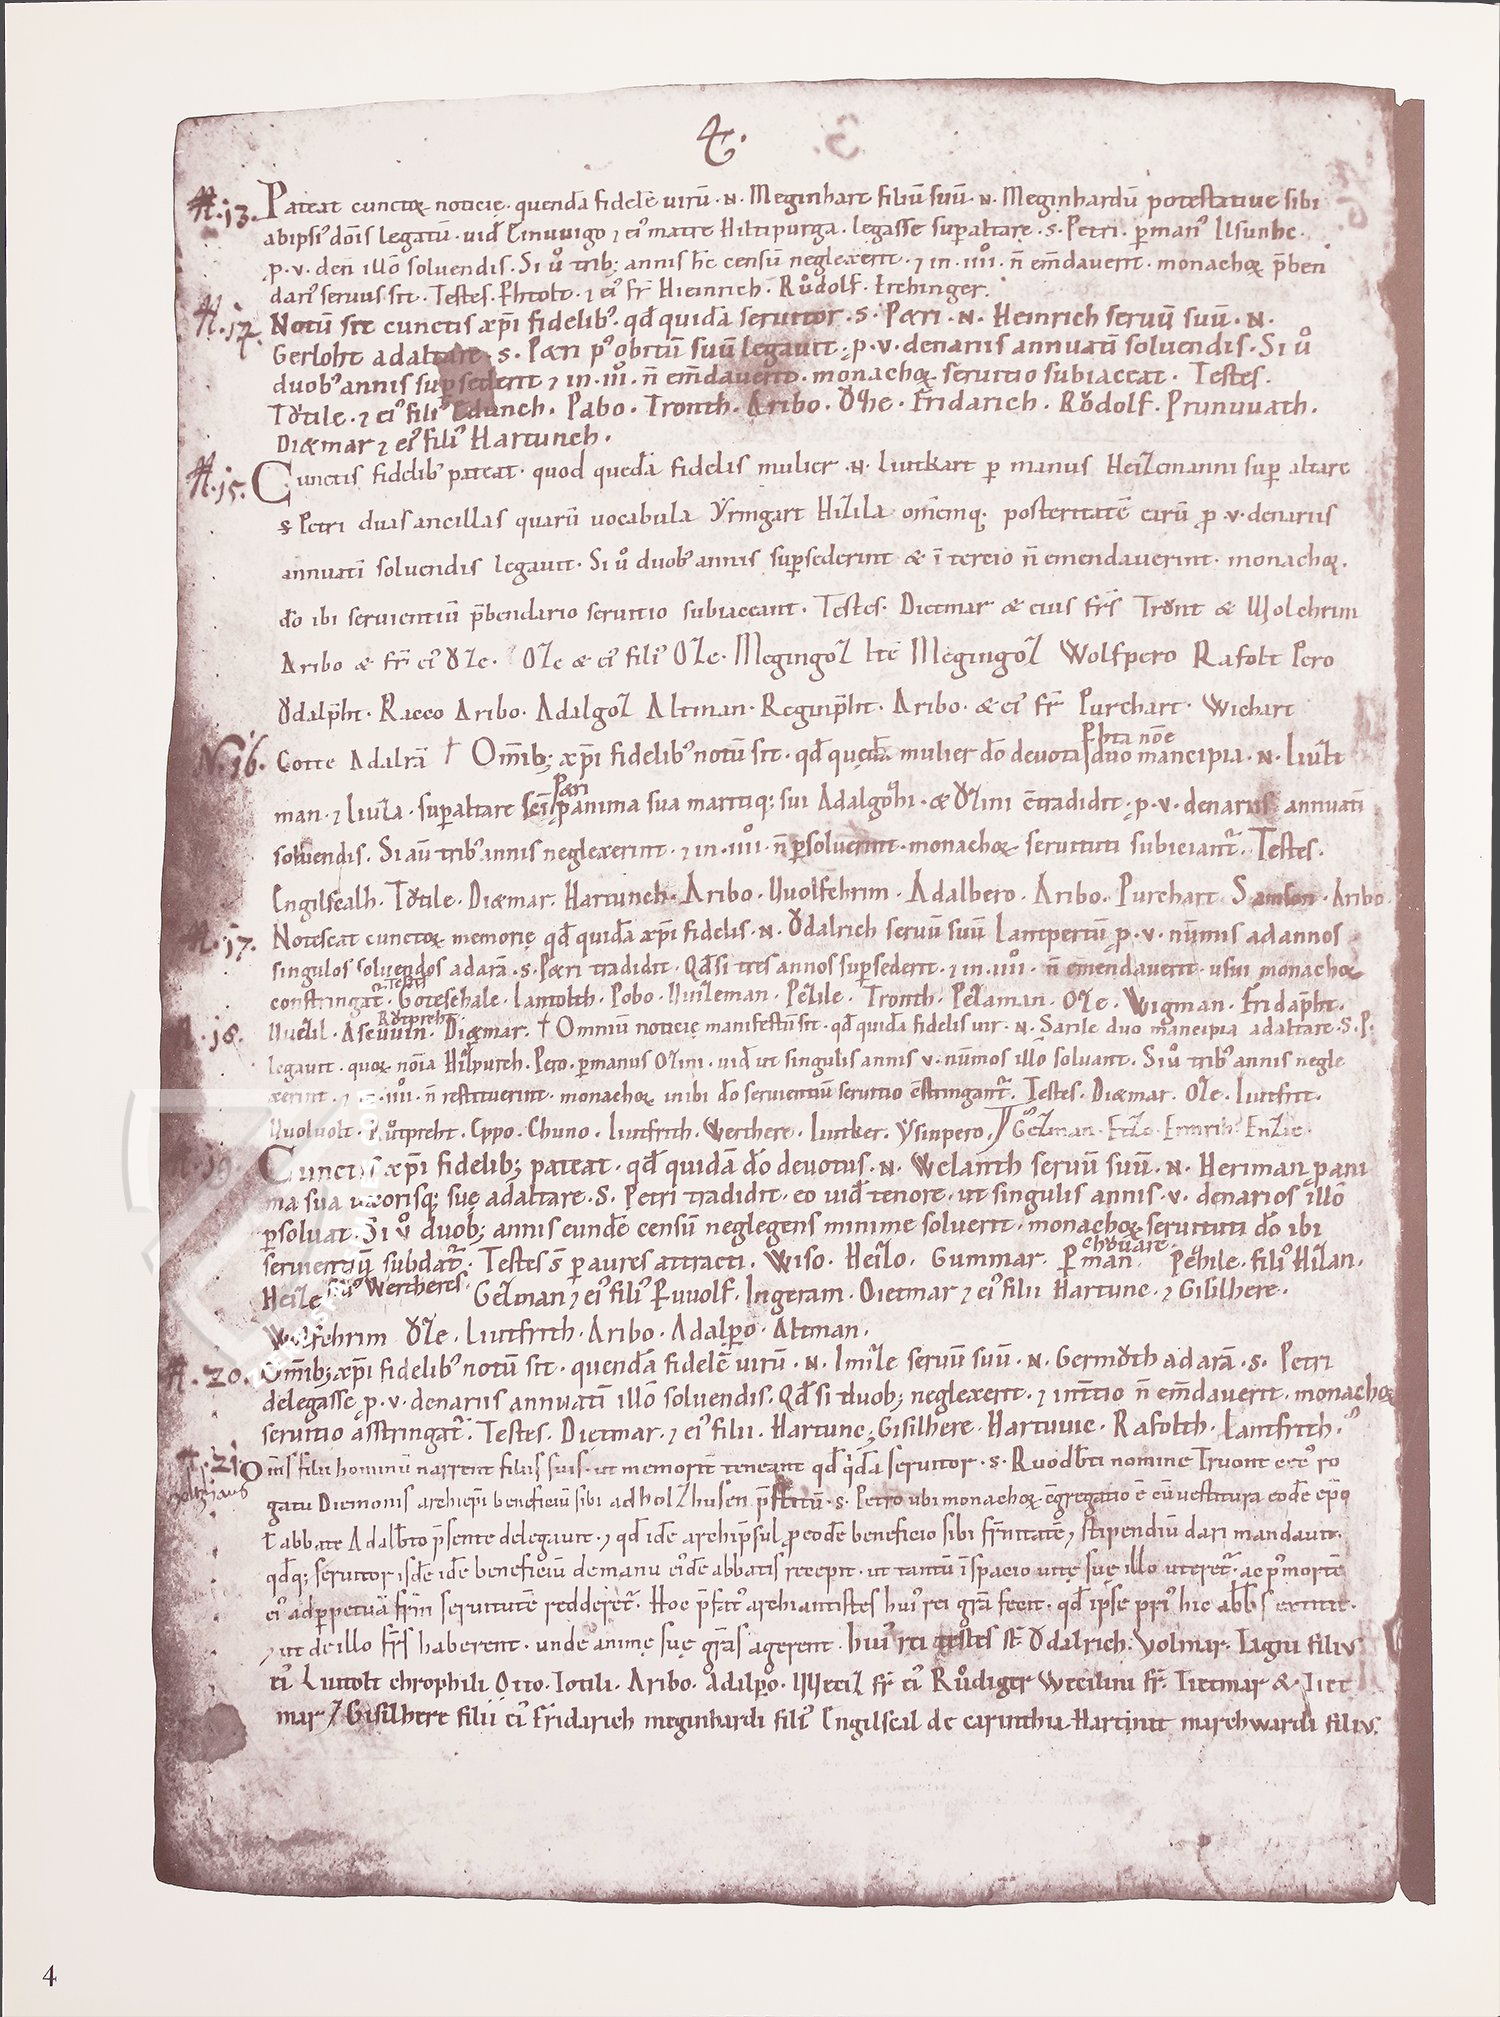 4.
N.13. Pateat cunctoꝝ noticię · quendā fidelē virū · N · Meginhart filiū suū · N · Meginhardū potestative sibi
ab ipsiꝰ dōis legatū · vid̄ Einuuigo ⁊ eiꝰ matre Hiltipurga · legasse sup altare · S · Petri · p manꝰ
p · v · den̄ illō solvendis · Si ů trib; annis hc̄ censū neglexerit · ⁊ in · IIII · n̄ em̄daverit · monachoꝝ p̄ben
dariꝰ servus sit · Testes · ⁊ eiꝰ fr̄ Heinrich · Růdolf · Erchinger ·
N.14. Notū sit cunctis xp̄i fidelibꝰ · qd̄ quidā servitor · S · Pæri · N · Heinrich servū suū · N ·
Gerloht ad altare · S · Pæri pꝰ obitū suū legavit · p · v · denariis annuatī solvendis · Si ů
duobꝰ annis supsederit ⁊ in · IIIº · n̄ em̄daverit · monachoꝝ servitio subiaceat · Testes ·
Tŏtile · ⁊ eiꝰ filiꝰ · Pabo · Tronth · Aribo · Fridarich · Rŏdolf · Prunuuath ·
Diæmar ⁊ eiꝰ filiꝰ Hartunch ·
N.15. Cunctis fidelibꝰ pateat · quod quedā fidelis mulier · N · Liutkart p manus Heizemanni sup altare
S Petri duas ancillas quarū vocabula Yrmgart Hizila omēmq; posteritatē earū p · v · denariis
annuatī solvendis legavit · Si ů duobꝰ annis supsederint & ī tercio n̄ emendaverint · monachoꝝ ·
dō ibi servientiū p̄bendario servitio subiaceant · Testes · Dietmar & eius frs̄ Trŏnt & Wolchrim
Aribo & fr̄ eiꝰ Ŏze · Oze & eiꝰ filiꝰ Oze · Megingoz Itē Megingoz Wolfpero Rafolt Pero
Ŏdalp̄ht · Racco Aribo · Adalgoz Altman · Reginp̄ht · Aribo · & eiꝰ fr̄ Purchart · Wichart
N.16. Cotte Adalrā † Om̄ib; xp̄i fidelibꝰ notū sit · qd̄ quędā mulier dō devota Phta nōe duo mancipia · N · Liuzt
man · ⁊ Liuza · sup altare sc̄i Pæri p anima sua maritiq; sui Adalgŏzhi · & Ŏzini cͦtradidit · p · v · denariis annuatī
solvendis · Si aū tribꝰ annis neglexerint · ⁊ in · IIIIº · n̄ psolverint · monachoꝝ servituti subiciant᷑ · Testes ·
Engilscalh · Tŏtile · Diæmar · Hartunch · Aribo · Uuolfchrim · Adalbero · Aribo · Purchart · Samson · Aribo ·
N.17. Notescat cunctoꝝ memorię qd̄ quidā xp̄i fidelis · N · Ŏdalrich servū suū Lampertū p · v · nūmis ad annos
singulos solvendos ad arā · S · Pæri tradidit · Qd̄ si tres annos supsederit · ⁊ in · IIIIº · n̄ emendaverit · usui monachoꝝ
constringat᷑ · Testes Goteschalc · Lantolth · Pobo · Uuizeman · Pezile · Tronth · Pezaman · Oze · Wigman · Fridap̄ht ·
N.18. Uuezil · Ascuuin · Rŏtpreht · Diæmar · † Omniū noticię manifestū sit · qd̄ quidā fidelis vir · N · Sarile duo mancipia ad altare · S · P ·
legavit · quoꝝ nōia Hizpurch · Pero · p manus Ozini · vid̄ ut singulis annis v · nūmos illō solvant · Si ů tribꝰ annis negle
xerint · ⁊ in · IIIIº · n̄ restituerint · monachoꝝ inibi dō servientiū servitio cͦstringant᷑ · Testes · Diæmar · Oze · Liutfrit ·
Uuoluolt · Růtpreht · Eppo · Chuno · Liutfrith · Werthere · Liutker · Ysinpero · Gozman · Ezzo · Ermrih · Enzie ·
N.19. Cunctis xp̄i fidelib; pateat · qd̄ quidā dō devotus · N · Welanth servū suū · N · Heriman p ani
ma sua uxorisq; suę ad altare · S · Petri tradidit · eo vid̄ tenore · ut singulis annis · v · denarios illō
psolvat · Si ů duob; annis eundē censū neglegens minime solverit · monachoꝝ servituti dō ibi
servientiū subdat᷑ · Testes s̄ p aures attracti · Wiso · Heizo · Gummar · Pman · Pezhile · filiꝰ Hizan ·
Heize filiꝰ Wertheres · Gezman ⁊ eiꝰ filiꝰ Ruuolf · Ingeram · Dietmar ⁊ eiꝰ filii Hartunc · ⁊ Gisilhere ·
Wolfchrim Ŏze · Liutfrith · Aribo · Adalpo · Altman ·
N.20. Om̄ib; xp̄i fidelibꝰ notū sit · quendā fidelē virū · N · Imize servū suū · N · Germŏth ad arā · S · Petri
delegasse p · v · denariis annuatī illō solvendis · Qd̄ si duob; neglexerit · ⁊ in t̄tio n̄ em̄daverit · monachoꝝ
servitio asstringat᷑ · Testes · Dietmar · ⁊ eiꝰ filii · Hartunc · Gisilhere · Hartuuic · Rafolth · Lantfrith ·
N.21. Om̄s filii hominū narrent filiis suis · ut memorit̄ teneant qd̄ q̇dā servitor · S · Ruodb̄ti nomine Truont ro
gatu Diemonis archiep̄i beneficiū sibi ad holzhusen p̄stitū · S · Petro ubi monachoꝝ cͦgregatio ē cū vestitura eodē ep̄o
⁊ abbate Adalb̄to p̄sente delegavit · ⁊ qd̄ idē archip̄sul p eodē beneficio sibi fr̄nitatē ⁊ stipendiū dari mandavit ·
qd̄q; servitor isdē idē beneficiū de manu eiꝰdē abbatis recepit · ut tantū ī spacio vitę suę illo uteret᷑ · ac pꝰ mortē
eiꝰ ad ppetuā fr̄m servitutē redderet᷑ · Hoc p̄fatꝰ archiantistes huiꝰ rei gr̄a fecit · qd̄ ipse priꝰ hic abb̄s extitit ·
⁊ ut de illo fr̄s haberent · unde animę suę gr̄as agerent · huiꝰ rei testes st̄ Ŏdalrich · Volmar · Iagni filiꝰ
eiꝰ Liutolt chrophili Otto · Iotili · Aribo · Adilpo · Wezil fr̄ eiꝰ Růdiger Wecilini fr̄ · Tietmar & Tiet
mar ⁊ Gisilhere filii eiꝰ Fridarich meginhardi filiꝰ Engilscal de carinthia Hartinit marchwardi filiꝰ ·
4